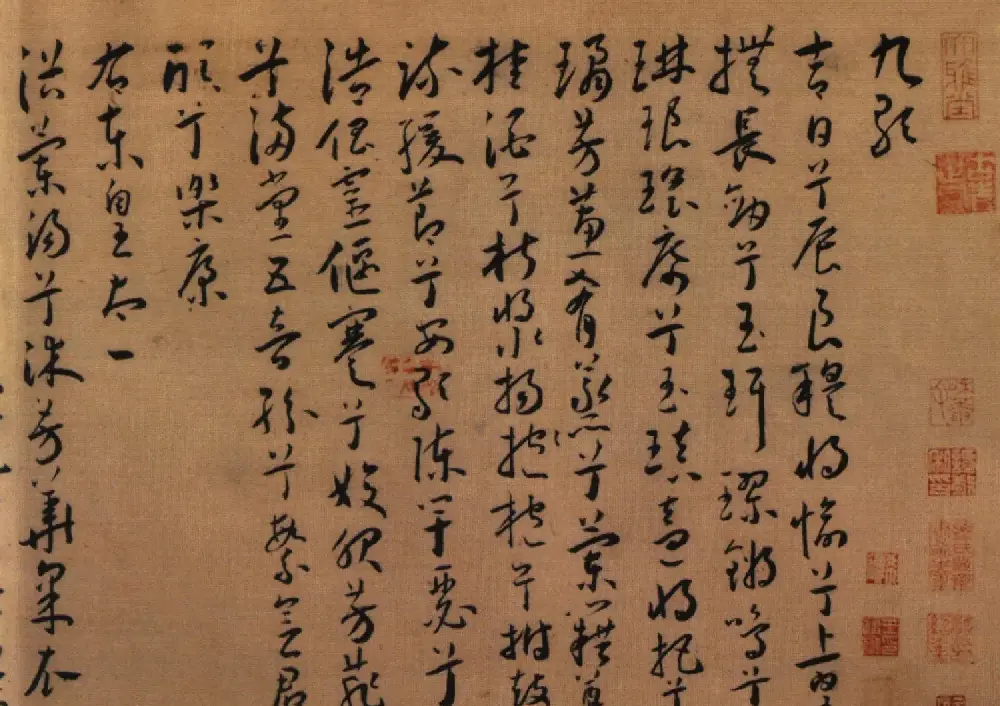 九歌
吉日兮辰良穆將愉兮上皇
撫長劍兮玉珥璆鏘鳴兮
琳琅瑤席兮玉瑱盍將把兮
瓊芳蕙肴蒸兮蘭藉奠
桂酒兮椒漿揚抱枹兮拊鼓
疏緩節兮安歌陳竽瑟兮
浩倡靈偃蹇兮姣服芳菲
兮滿堂五音紛兮繁會君
欣兮樂康
右東皇太一
浴蘭湯兮沐芳華采衣